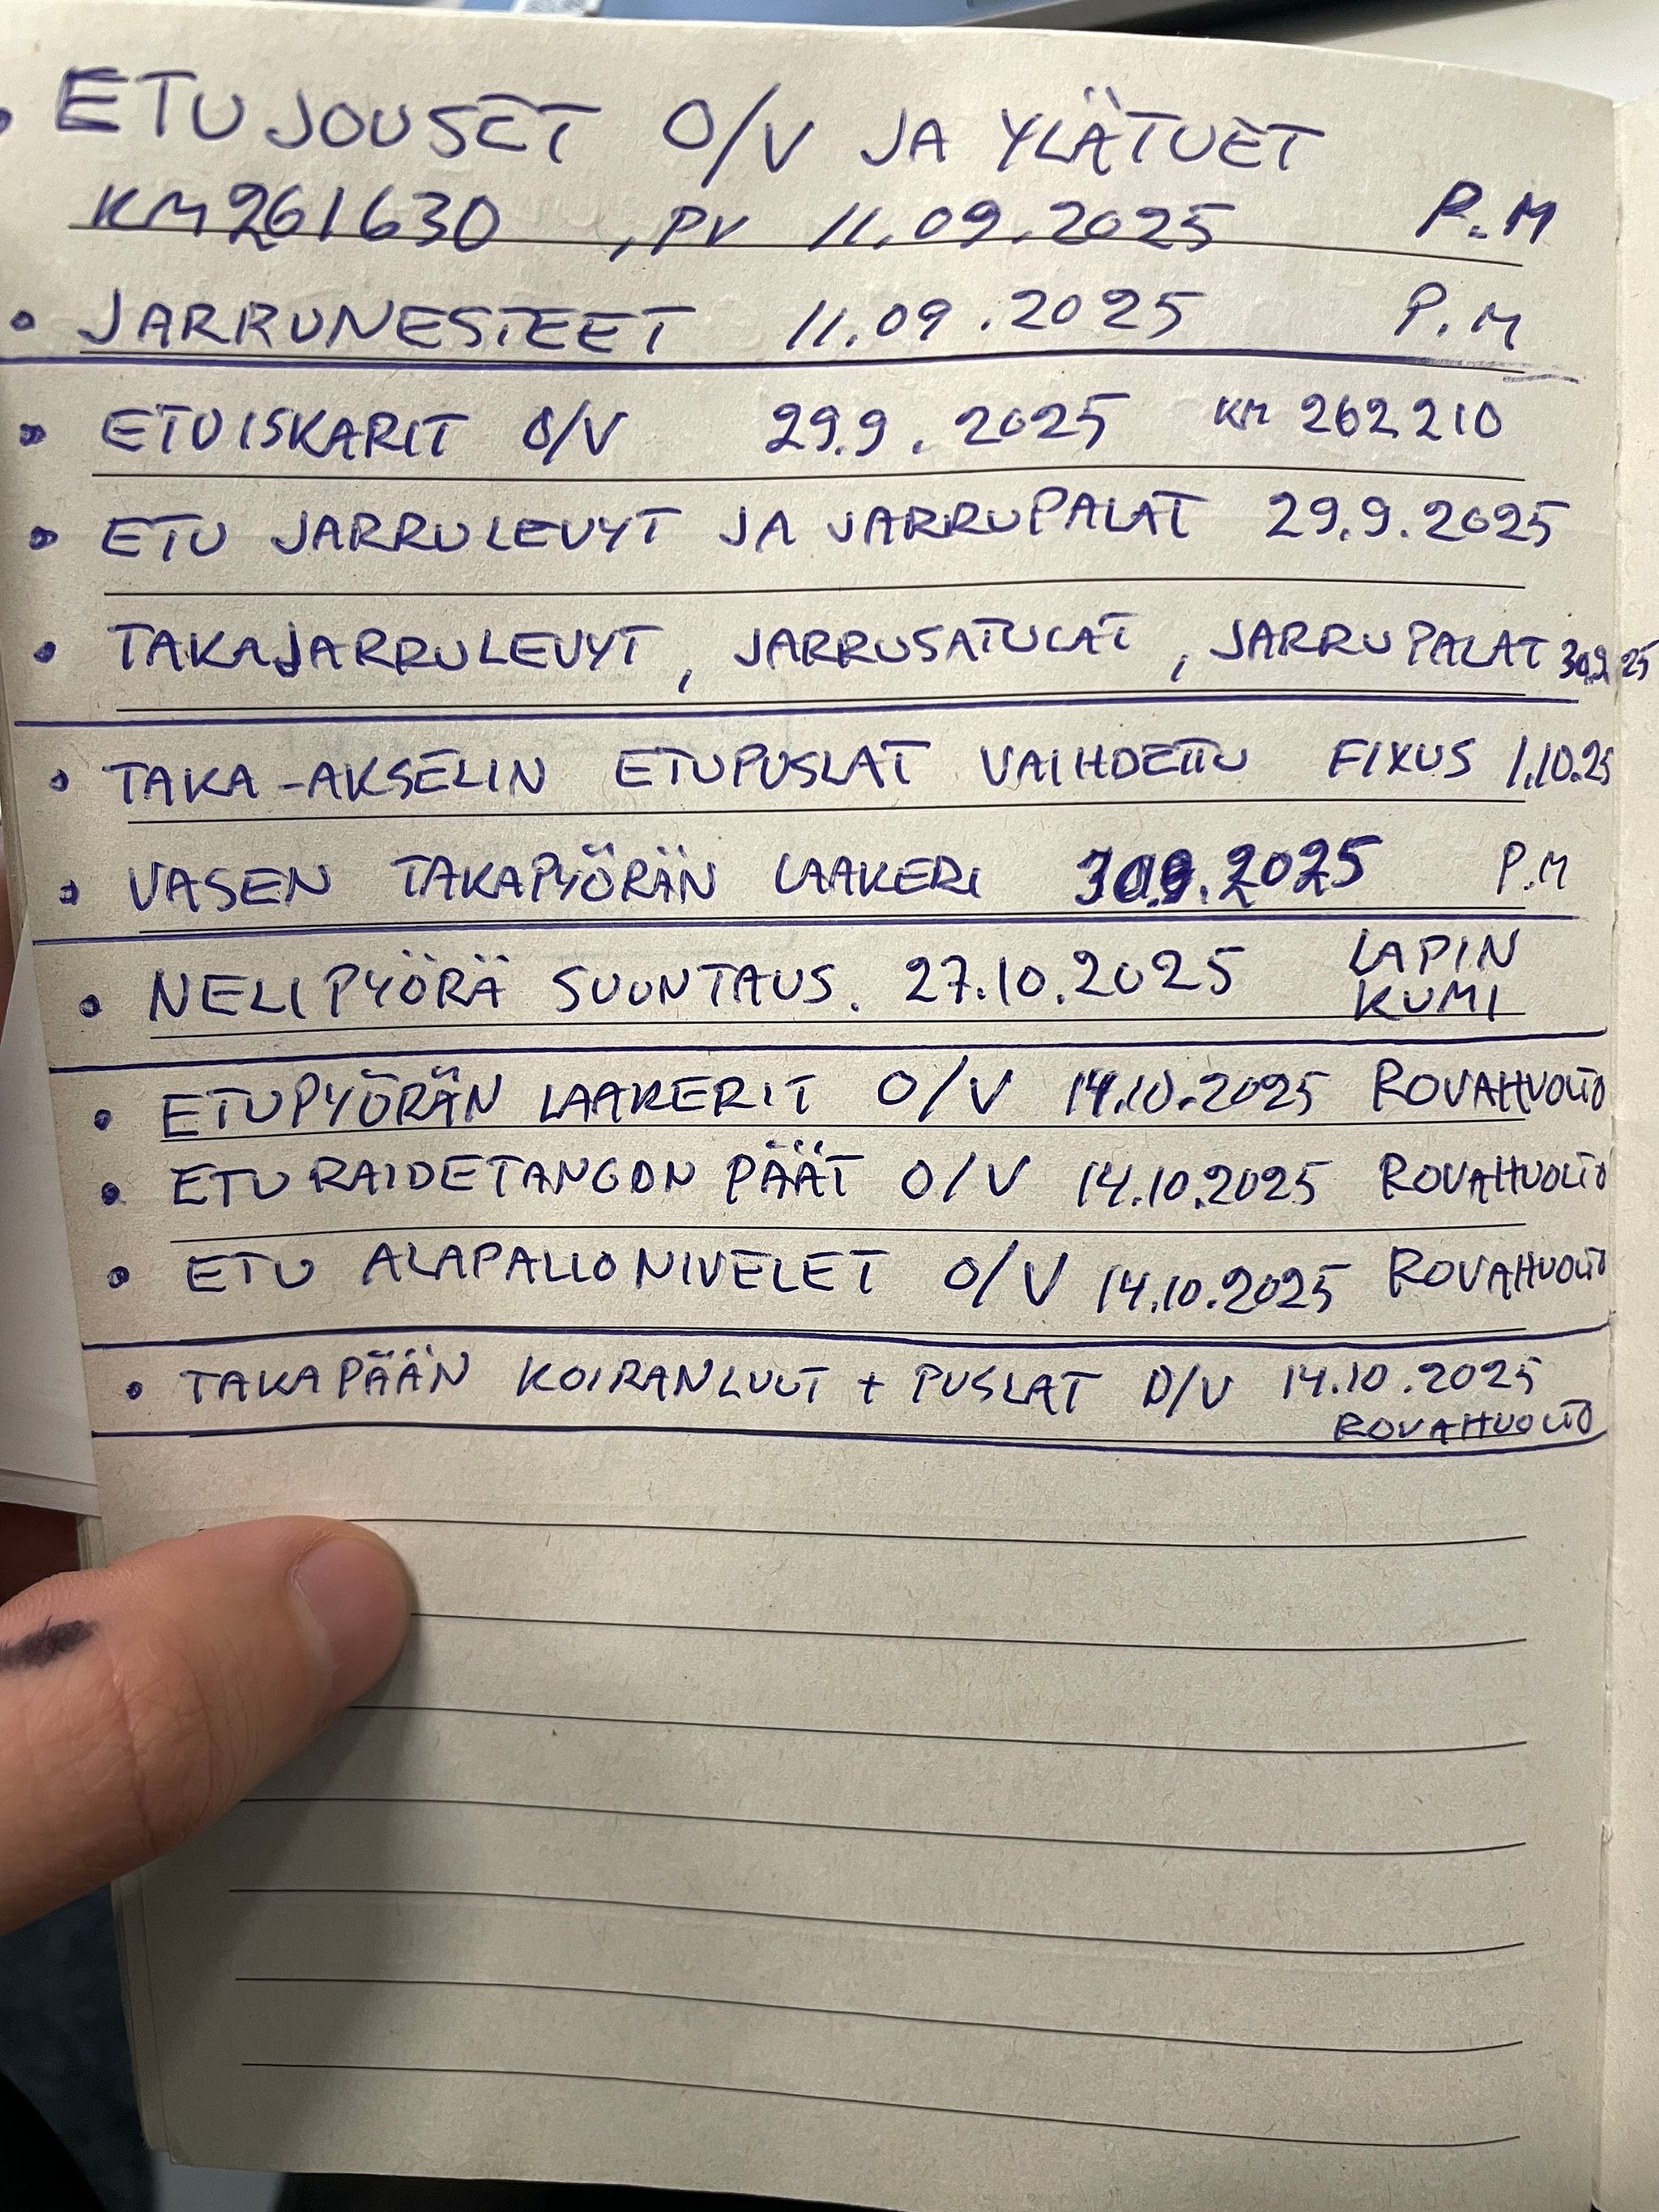 • ETUJOUSET O/V JA YLÄTUET
KM261630 , PV 11.09.2025 P.M
• JARRUNESTEET 11.09.2025 P.M
• ETUISKARIT O/V 29.9.2025 KM 262210
• ETU JARRULEVYT JA JARRUPALAT 29.9.2025
• TAKAJARRULEVYT, JARRUSATULAT, JARRUPALAT 30.9.25
• TAKA-AKSELIN ETUPUSLAT VAIHDETTU FIXUS 1.10.25
• VASEN TAKAPYÖRÄN LAAKERI 30.9.2025 P.M
• NELIPYÖRÄ SUUNTAUS. 27.10.2025 LAPIN
KUMI
• ETUPYÖRÄN LAAKERIT O/V 14.10.2025 ROVAHUOLTO
• ETU RAIDETANGON PÄÄT O/V 14.10.2025 ROVAHUOLTO
• ETU ALAPALLONIVELET O/V 14.10.2025 ROVAHUOLTO
• TAKAPÄÄN KOIRANLUUT + PUSLAT O/V 14.10.2025
ROVAHUOLTO